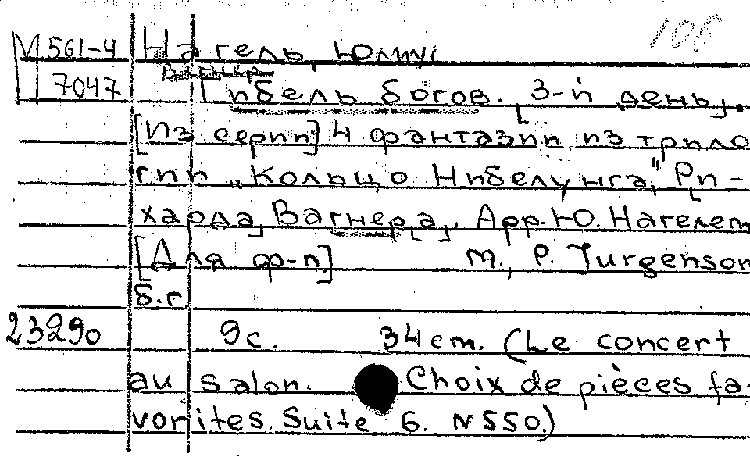 108
М 561-4 Нагель, Юлиус
7047
Гибель богов. [3-й день].
[Из серии] 4 фантазии из трило
гии "Кольцо Нибелунга," Ри-
харда Вагнера,. Арр. Ю. Нагелем
[Для ф-п] М., P. Jurgenson
б.г.
23290 9с. 34 cm. (Le concert
au salon. Choix de pièces fa-
vorites. Suite 6. N 550.)